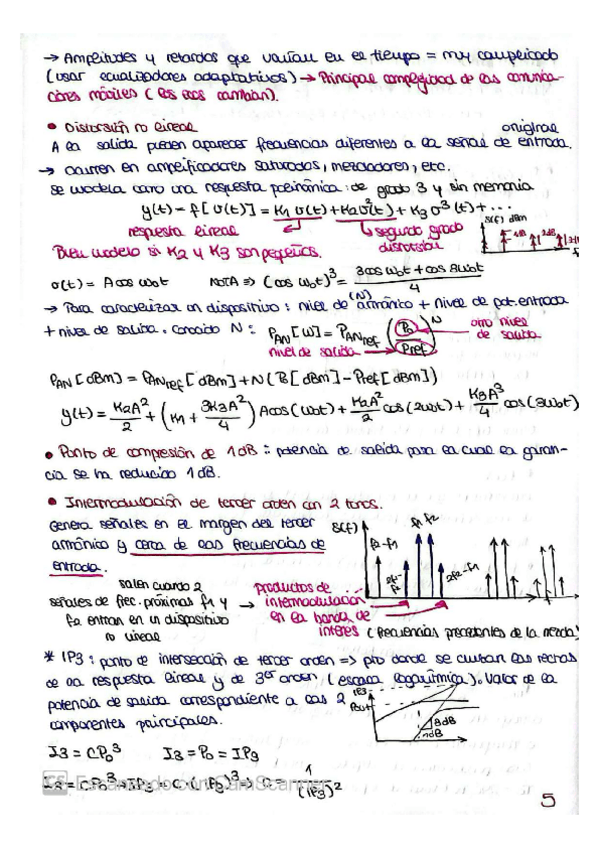 → Amplitudes y retardos que varían en el tiempo = muy complicado
(usar ecualizadores adaptativos) → Principal complejidad de las comunica-
ciones móviles (los ecos cambian).
• Distorsión no lineal
A la salida pueden aparecer frecuencias diferentes a la señal original de entrada.
→ ocurren en amplificadores saturados, mezcladores, etc.
se modela como una respuesta polinómica: de grado 3 y sin memoria
y(t) = f[v(t)] = K1 v(t) + K2 v²(t) + K3 v³(t) + ...
respuesta lineal
segundo grado distorsión
S(f) dBm
Buen modelo si K2 y K3 son pequeños.
v(t) = A cos ω0t NOTA ⇒ (cos ω0t)³ = 3cos ω0t + cos 3ω0t / 4
→ Para caracterizar un dispositivo: nivel de armónico (N) + Nivel de pot. entrada
+ nivel de salida. Conocido N: PAN [W] = PANref (Po / Pref)^N otro nivel de salida
nivel de salida
PAN [dBm] = PANref [dBm] + N (Po [dBm] - Pref [dBm])
y(t) = K2A²/2 + (K1 + 3K3A²/4) A cos(ω0t) + K2A²/2 cos(2ω0t) + K3A³/4 cos(3ω0t)
• Punto de compresión de 1dB: potencia de salida para la cual la ganan-
cia se ha reducido 1dB.
• Intermodulación de tercer orden con 2 tonos.
Genera señales en el margen del tercer
armónico y cerca de las frecuencias de
entrada.
S(f) f2-f1 f1 f2 2f2-f1
salen cuando 2
señales de frec. próximas f1 y
f2 entran en un dispositivo
no lineal
→ productos de
intermodulación
en la banda de
interés (frecuencias procedentes de la mezcla)
* IP3: punto de intersección de tercer orden ⇒ pto donde se cruzan las rectas
de la respuesta lineal y de 3er orden (escala logarítmica). Valor de la
potencia de salida correspondiente a los 2
componentes principales.
IP3
Pout
3dB
1dB
I3 = CPo³ I3 = Po = IP3
1/(IP3)²
CS Escaneado con CamScanner
5